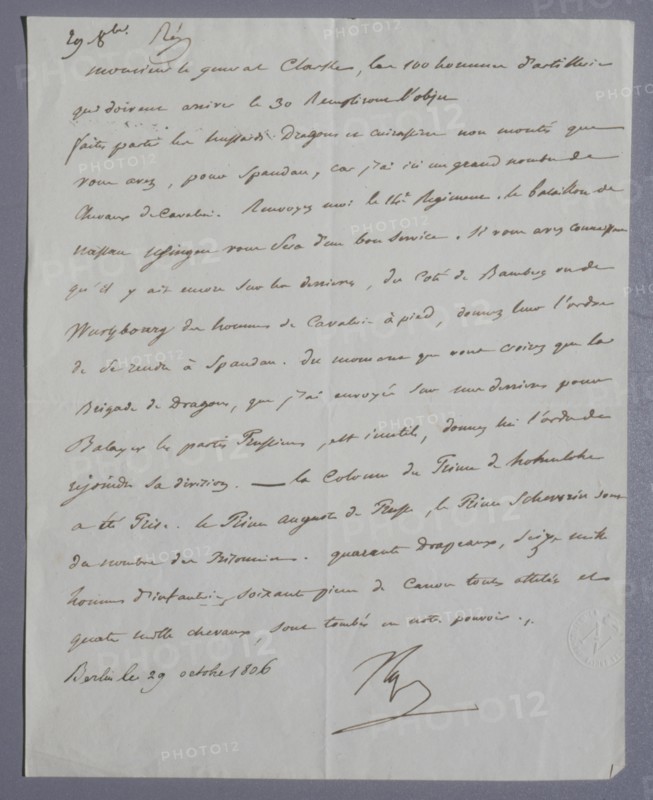 29 8bre. Rép
Monsieur le general Clarke, les 100 hommes d'artillerie
qui doivent arriver le 30 Rempliront l'objet
faites partir les hussards Dragons et cuirassiers non montés que
vous avez, pour Spandau, car j'ai ici un grand nombre de
Chevaux de Cavalerie. Renvoyez moi le 14e Regiment. le bataillon de
nassau usingen vous Sera d'un bon Service. Si vous avez connaissance
qu'il y ait encore Sur les derrieres, du Coté de Bamberg ou de
Wurtzbourg des hommes de Cavalerie à pied, donnez leur l'ordre
de Se rendre à Spandau. du moment que vous croirez que la
Brigade de Dragons, que j'ai envoyée Sur mes derrieres pour
Balayer les partis Prussiens, est inutile, donnez lui l'ordre de
rejoindre Sa division. — la Colonne du Prince de hohenlohe
a été Prise. le Prince auguste de Prusse, le Prince Schwerin sont
du nombre des Prisonniers. quarante drapeaux, Seize mille
hommes d'infanterie, soixante pieces de Canon toutes attelées et
quatre mille chevaux, sont tombés en notre pouvoir.
Berlin le 29 octobre 1806
Np
PHOTO12